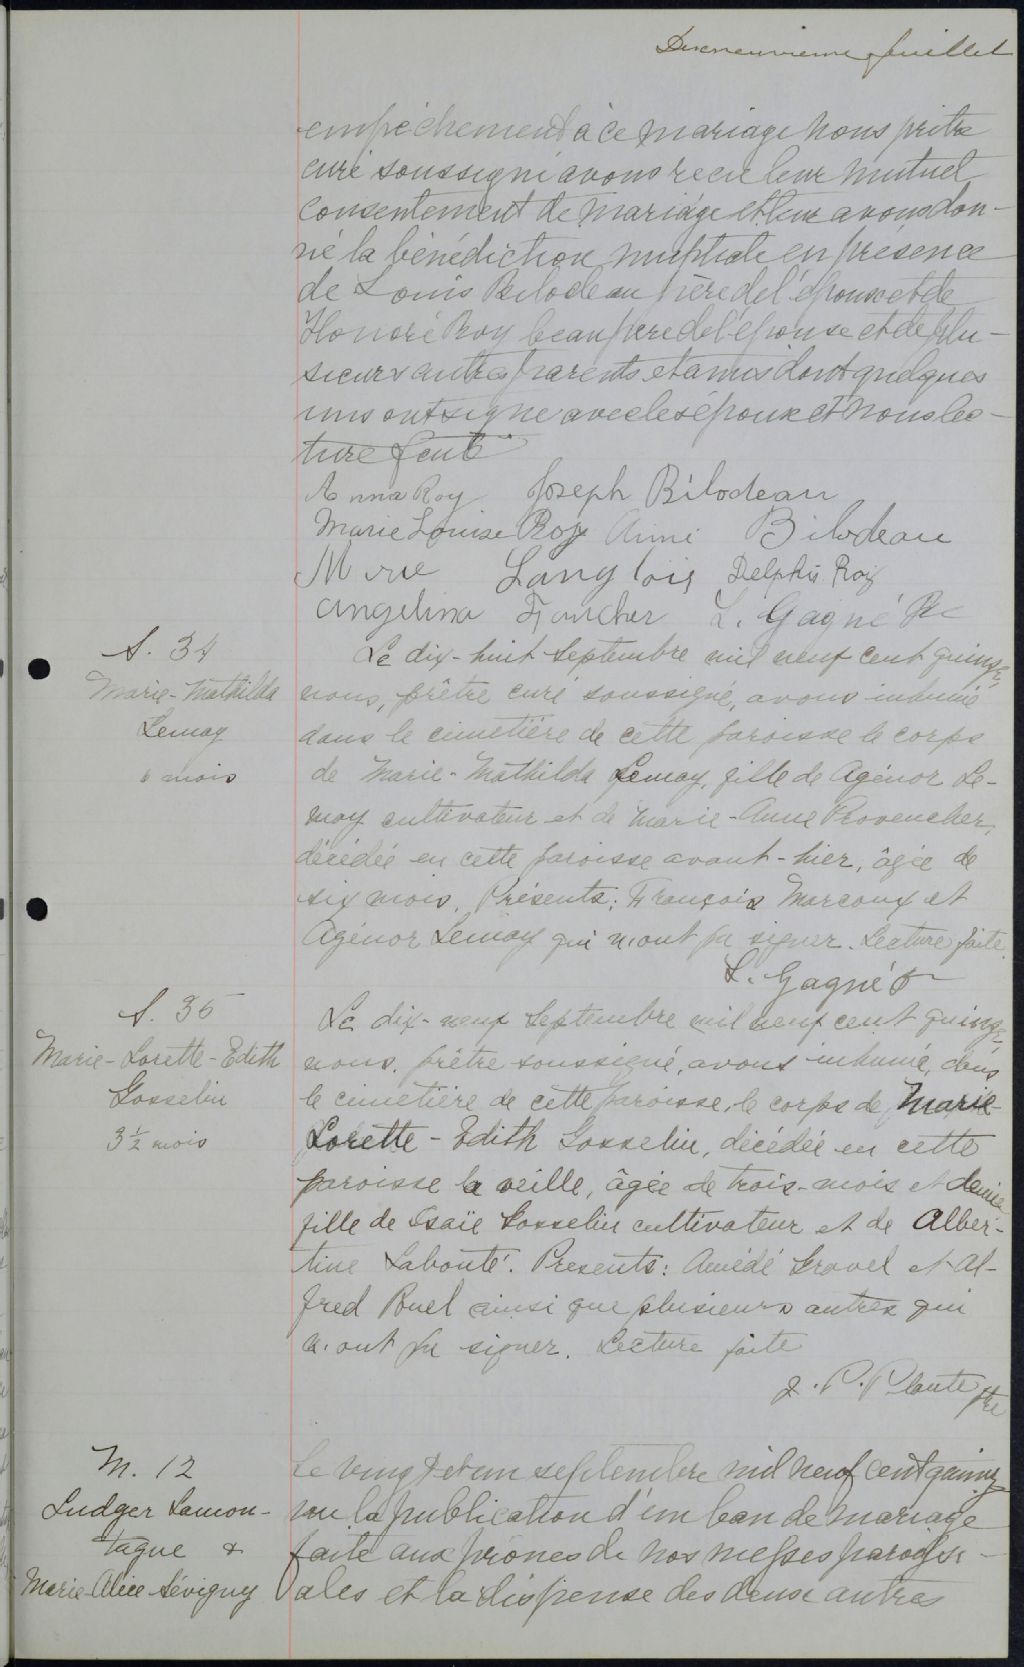 Dixneuvieme feuillet
empêchement à ce mariage nous prêtre
curé soussigné avons reçu leur mutuel
consentement de mariage et leur avons don-
né la bénédiction nuptiale en présence
de Louis Bilodeau père de l'époux et de
Honoré Roy beau père de l'épouse et de plu-
sieurs autres parents et amis dont quelques
uns ont signé avec les époux et nous lec-
ture faite
Anna Roy Joseph Bilodeau
Marie Louise Roy Aimé Bilodeau
Langlois Delphis Roy
Angelina Faucher L. Gagné Ptre
S. 34
Marie-Mathilda
Lemay
6 mois
Le dix-huit Septembre mil neuf cent quinze,
nous, prêtre curé soussigné, avons inhumé
dans le cimetière de cette paroisse le corps
de Marie-Mathilda Lemay, fille de Agénor Le-
may cultivateur et de Marie-Anne Provencher,
décédée en cette paroisse avant-hier, âgée de
six mois. Présents: François Marcoux et
Agénor Lemay qui n'ont pu signer. Lecture faite.
L. Gagné
S. 35
Marie-Lorette-Edith
Gosselin
3 1/2 mois
Le dix-neuf Septembre mil neuf cent quinze,
nous, prêtre soussigné, avons inhumé, dans
le cimetière de cette paroisse, le corps de Marie-
Lorette-Edith Gosselin, décédée en cette
paroisse la veille, âgée de trois-mois et demie
fille de Isaïe Gosselin cultivateur et de Alber-
tine Labonté. Presents: Amédé Gravel et Al-
fred Ruel ainsi que plusieurs autres qui
n'ont pu signer. Lecture faite
J. P. Plante ptre
M. 12
Ludger Lamon-
tagne &
Marie-Alice Sévigny
Le vingt et un septembre mil neuf cent quinze
vu la publication d'un ban de mariage
faite aux prones de nos messes paroissi-
ales et la dispense des deux autres